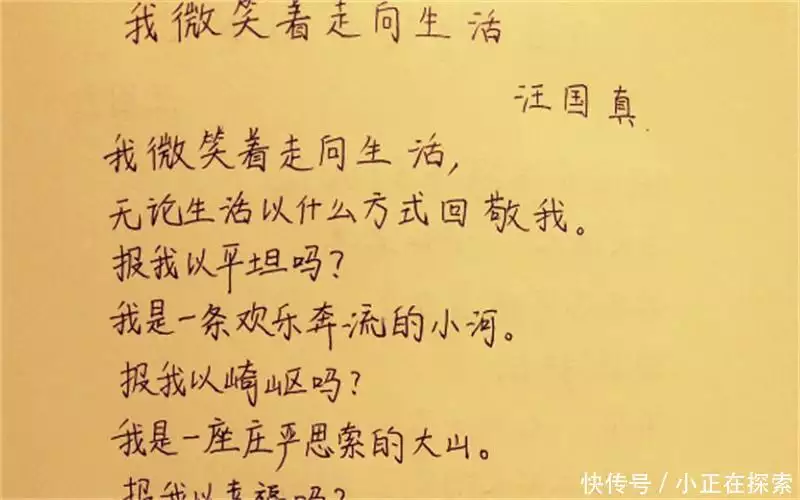 我微笑着走向生活
汪国真
我微笑着走向生活,
无论生活以什么方式回敬我。
报我以平坦吗?
我是一条欢乐奔流的小河。
报我以崎岖吗?
我是一座庄严思索的大山。
报我以幸福吗?
快传号/小正在探索